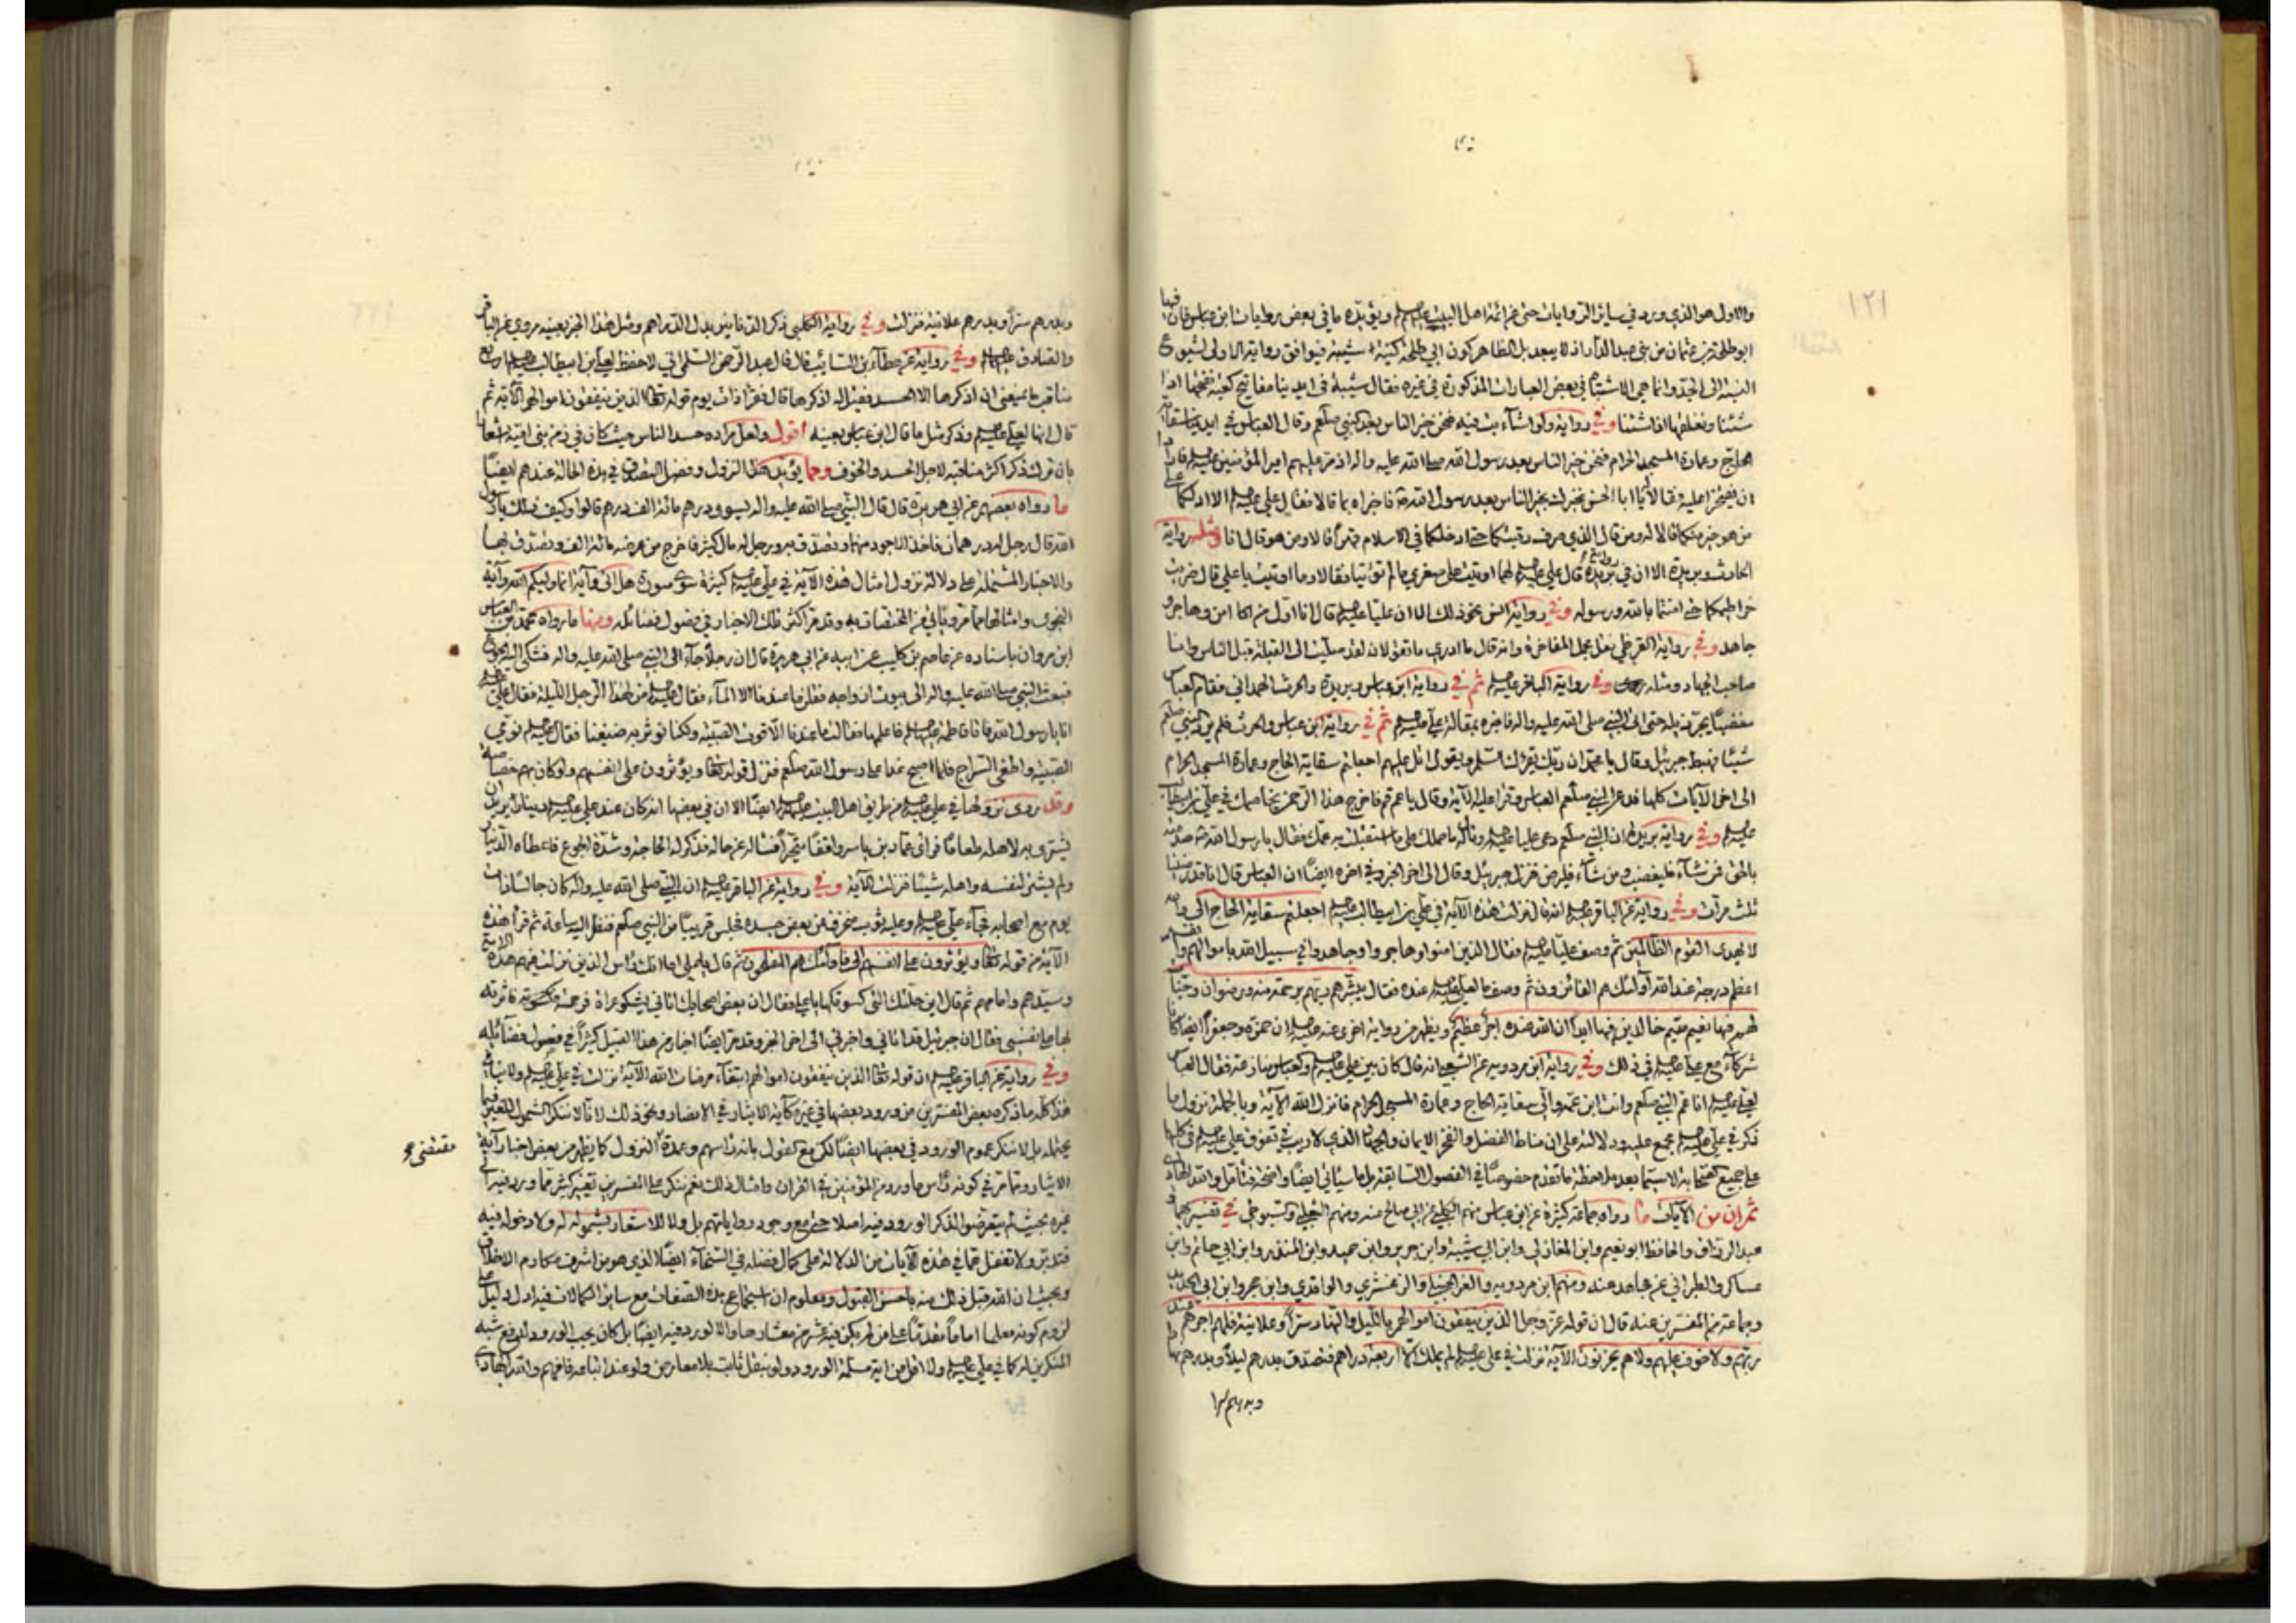 ١٢١
والاول هو الذي ورد في سائر الروايات حتى عن ائمة اهل البيت عليهم ويؤيده ما في بعض روايات ابن عباس فان فيها
ابو طلحة بن عثمان من بني عبد الدار اذ لا يبعد بل الظاهر كون ابي طلحة كنية شيبة فيوافق رواية الاولى لشيوع
النسبة الى الجد وانما هي الاشتباه في بعض العبارات المذكورة في غيره فقال شيبة في ايدينا مفاتيح كعبة نفتحها اذا
شئنا ونغلقها اذا شئنا وفي رواية ولو اشاء بت فيه فنحن خير الناس بعد النبي صلعم وقال العباس في ايدينا سقاية
الحاج وعمارة المسجد الحرام فنحن خير الناس بعد رسول الله صلى الله عليه واله اذ مر عليهم امير المؤمنين
ان يفتخرا عليه وقالا يا ابا الحسن نخبرك بخير الناس بعد رسول الله فاخبراه بما قالا فقال علي الا ادلكما على
من هو خير منكما قالا له ومن قال الذي صرف رقبتكما حتى ادخلكما في الاسلام قهرا قالا ومن هو قال انا ومثله رواية
الحارث وبريدة الا ان في رواية بريدة قال علي لهما اوتيت على صغري ما لم تؤتيا فقالا وما اوتيت يا علي قال ضربت
خراطيمكما حتى امنتما بالله ورسوله وفي رواية انس نحو ذلك الا ان عليا قال انا اول منكما امن وهاجر و
جاهد وفي رواية القرظي نقل مجمل المفاخرة وانه قال ما ادري ما تقولان لقد صليت الى القبلة قبل الناس وانا
صاحب الجهاد ومثله وفي رواية الباقر ثم في رواية ابن عباس وبريدة والحرث الهمداني فقام العباس
مغضبا يجر ذيله حتى اتى النبي صلى الله عليه واله فاخبره بمقالة علي ثم في رواية ابن عباس والحرث فلم يرد النبي صلعم
شيئا فهبط جبرئيل وقال يا محمد ان ربك يقرئك السلام ويقول اتل عليهم اجعلتم سقاية الحاج وعمارة المسجد الحرام
الى اخر الآيات كلها فدعى النبي صلعم العباس وقرا عليه الآية وقال يا عم قم فاخرج هذا الرحمن يخاصمك في علي بن ابيطالب
وفي رواية بريدة ان النبي صلعم دعى عليا وقال له ما حملك على ما استقبلت به عمك فقال يا رسول الله صدمته
بالحق فمن شاء فليغضب ومن شاء فليرض فنزل جبرئيل وقال الى اخر الخبر وفي اخره ايضا ان العباس قال انا قد رضينا
ثلث مرات وفي رواية عن الباقر انه قال نزلت هذه الآية في علي بن ابيطالب اجعلتم سقاية الحاج الى والله
لا يهدى القوم الظالمين ثم وصف عليا فقال الذين امنوا وهاجروا وجاهدوا في سبيل الله باموالهم وانفسهم
اعظم درجة عند الله اولئك هم الفائزون ثم وصف ما لعلي عنده فقال يبشرهم ربهم برحمة منه ورضوان وجنات
لهم فيها نعيم مقيم خالدين فيها ابدا ان الله عنده اجر عظيم ويظهر من رواية اخرى عنه ان حمزة وجعفرا ايضا كانا
شركاء مع علي في ذلك وفي رواية ابن مردويه عن الشعبي انه قال كان بين علي والعباس منازعة فقال العباس
لعلي انا عم النبي صلعم وانت ابن عمه والي سقاية الحاج وعمارة المسجد الحرام فانزل الله الآية وبالجملة نزول ما
ذكر في علي مجمع عليه ودلالته على ان مناط الفضل والفخر الايمان والجهاد الذي لا ريب في تفوق علي في كليها
على جميع الصحابة لا سيما بعد ملاحظة ما تقدم خصوصا في الفصول السابقة بل ما سيأتي ايضا واضحة فتأمل والله الهادي
ثم ان من الآيات ما رواه جماعة كثيرة عن ابن عباس منهم الكلبي عن ابي صالح عنه ومنهم الثعلبي والسيوطي في تفسيرهما و
عبد الرزاق والحافظ ابو نعيم وابن المغازلي وابن ابي شيبة وابن جرير وابن حميد وابن المنذر وابن ابي حاتم وابن
عساكر والطبراني عن مجاهد عنه ومنهم ابن مردويه والزمخشري والواقدي وابن حجر وابن ابي الحديد
وجماعة من المفسرين عنه قال ان قوله عز وجل الذين ينفقون اموالهم بالليل والنهار سرا وعلانية فلهم اجرهم عند
ربهم ولا خوف عليهم ولا هم يحزنون الآية نزلت في علي لم يملك الا اربعة دراهم فتصدق بدرهم ليلا وبدرهم نهارا
وبدرهم سرا
وبدرهم سرا وبدرهم علانية فنزلت وفي رواية الكلبي ذكر الدنانير بدل الدراهم ومثل هذا الخبر بعينه مروي عن الباقر
والصادق وفي رواية عن عطاء بن السائب قال قال عبد الرحمن السلمي اني لاحفظ لعلي بن ابيطالب اربع
مناقب ما يمنعني ان اذكرها الا الحسد فقيل له اذكرها قال فقرأ ذات يوم قوله تعالى الذين ينفقون اموالهم الآية ثم
قال انها لعلي وذكر مثل ما قال ابن عباس بعينه اقول ولعل مراده حسد الناس حيث كان في زمن بني امية
بان ترك ذكر اكثر مناقبه لاجل الحسد والخوف ومما يؤيد هذا النزول وفضل التصدق في هذه الحالة عندهم ايضا
ما رواه بعضهم عن ابي هريرة قال قال النبي صلى الله عليه واله ليسبق درهم مائة الف درهم قالوا وكيف ذلك يا رسول
الله قال رجل له درهمان فاخذ الاجود منهما وتصدق به ورجل له مال كثير فاخرج من عرضه مائة الف وتصدق بها
والاخبار المشتملة على دلالة نزول امثال هذه الآية في علي كثيرة سوى سورة هل اتى وآية انما وليكم الله وآية
النجوى وامثالها مما مر ويأتي من المختصات به وقد مر اكثر تلك الاخبار في فصول فضائله ومنها ما رواه محمد بن العباس
ابن مروان باسناده عن عاصم بن كليب عن ابيه عن ابي هريرة قال ان رجلا جاء الى النبي صلى الله عليه واله فشكى اليه الجوع
فبعث النبي صلى الله عليه واله الى بيوت ازواجه فقلن ما عندنا الا الماء فقال من لهذا الرجل الليلة فقال علي
انا يا رسول الله فاتى فاطمة فاعلمها فقالت ما عندنا الا قوت الصبية ولكنا نؤثر به ضيفنا فقال نومي
الصبية واطفي السراج فلما اصبح غدا على رسول الله صلعم فنزل قوله تعالى ويؤثرون على انفسهم ولو كان بهم خصاصة
وقد روى نزولها في علي من طريق اهل البيت ايضا الا ان في بعضها انه كان عند علي دينار يريد ان
يشتري به لاهله طعاما فراى عمار بن ياسر واقفا متحيرا فسأله عن حاله فذكر له الحاجة وشدة الجوع فاعطاه الدينار
ولم يشتر لنفسه واهله شيئا فنزلت الآية وفي رواية عن الباقر ان النبي صلى الله عليه واله كان جالسا ذات
يوم مع اصحابه فجاء علي وعليه ثوب منخرق عن بعض جسده فجلس قريبا من النبي صلعم فنظر اليه ساعة ثم قرأ هذه
الآية من قوله تعالى ويؤثرون على انفسهم الى فاولئك هم المفلحون ثم قال لعلي اما انك رأس الذين نزلت فيهم هذه الآية
وسيدهم وامامهم ثم قال اين حلتك التي كسوتكها يا علي فقال ان بعض اصحابك اتاني يشكو عراه فرحمته فاثرته
بها على نفسي فقال ان جبرئيل قد اتاني واخبرني الى اخر الخبر وقد مر ايضا اخبار من هذا القبيل كثيرا في فصول فضائله
وفي رواية عن الباقر ان قوله تعالى الذين ينفقون اموالهم ابتغاء مرضات الله الآية نزلت في علي
هذا كله ما ذكره بعض المفسرين من ورود بعضها في غيره كآية الايثار في الانصار ونحو ذلك لانا لا ننكر الشمول للغير فيما
يحتمله بل لا ننكر عموم الورود في بعضها ايضا لكن مع القول بانه راسهم وعمدة النزول كما يظهر من بعض اخبار آية
مقتضى
الايثار ومما مر في كونه رأس ما ورد من المؤمنين في القرآن وامثال ذلك نعم ننكر على المفسرين تفسير كثير مما ورد فيه في
غيره بحيث لم يتعرضوا لذكر الورود فيه اصلا حتى مع وجود رواياتهم بل ولا للاستعار بشموله له ولا دخوله فيه
فتدبر ولا تغفل عما في هذه الآيات من الدلالة على كمال فضله في السخاء ايضا الذي هو من اشرف مكارم الاخلاق
وبحيث ان الله قبل ذلك منه باحسن القبول ومعلوم ان اجتماع هذه الصفات مع سائر الكمالات فيه ادل دليل على
لزوم كونه معلما اماما مقدما على من لم يكن فيه عشر من معشارها والا لورد فيه ايضا بل كان يجب الورود لدفع شبه
المنكرين له كما في علي ولا اقل من اية مسلمة الورود ولو بنقل ثابت بلا معارض ولو عند اتباعه فافهم والله الهادي